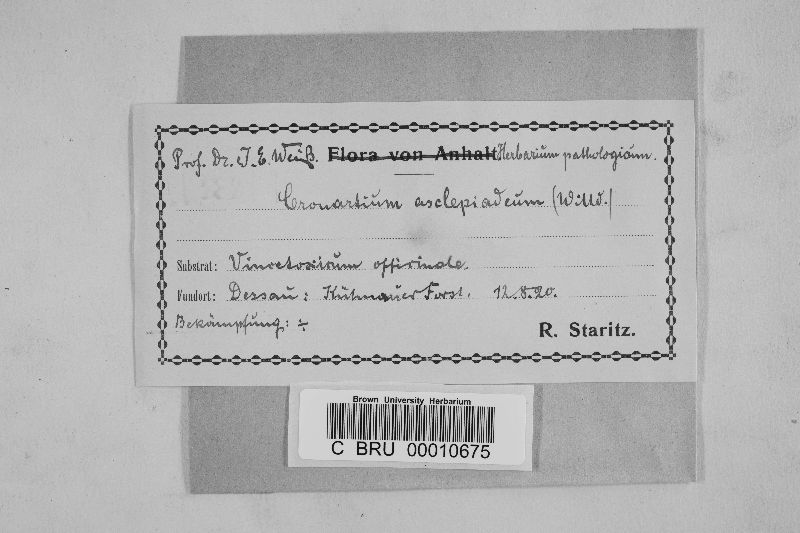 Prof. Dr. J. E. Weiß. Flora von Anhalt Herbarium pathologicum.
Cronartium asclepiadeum (Willd.)
Substrat: Vincetoxicum officinale.
Fundort: Dessau: Kühnauer Forst. 12.8.20.
Bekämpfung: ÷
R. Staritz.
Brown University Herbarium
C BRU 00010675